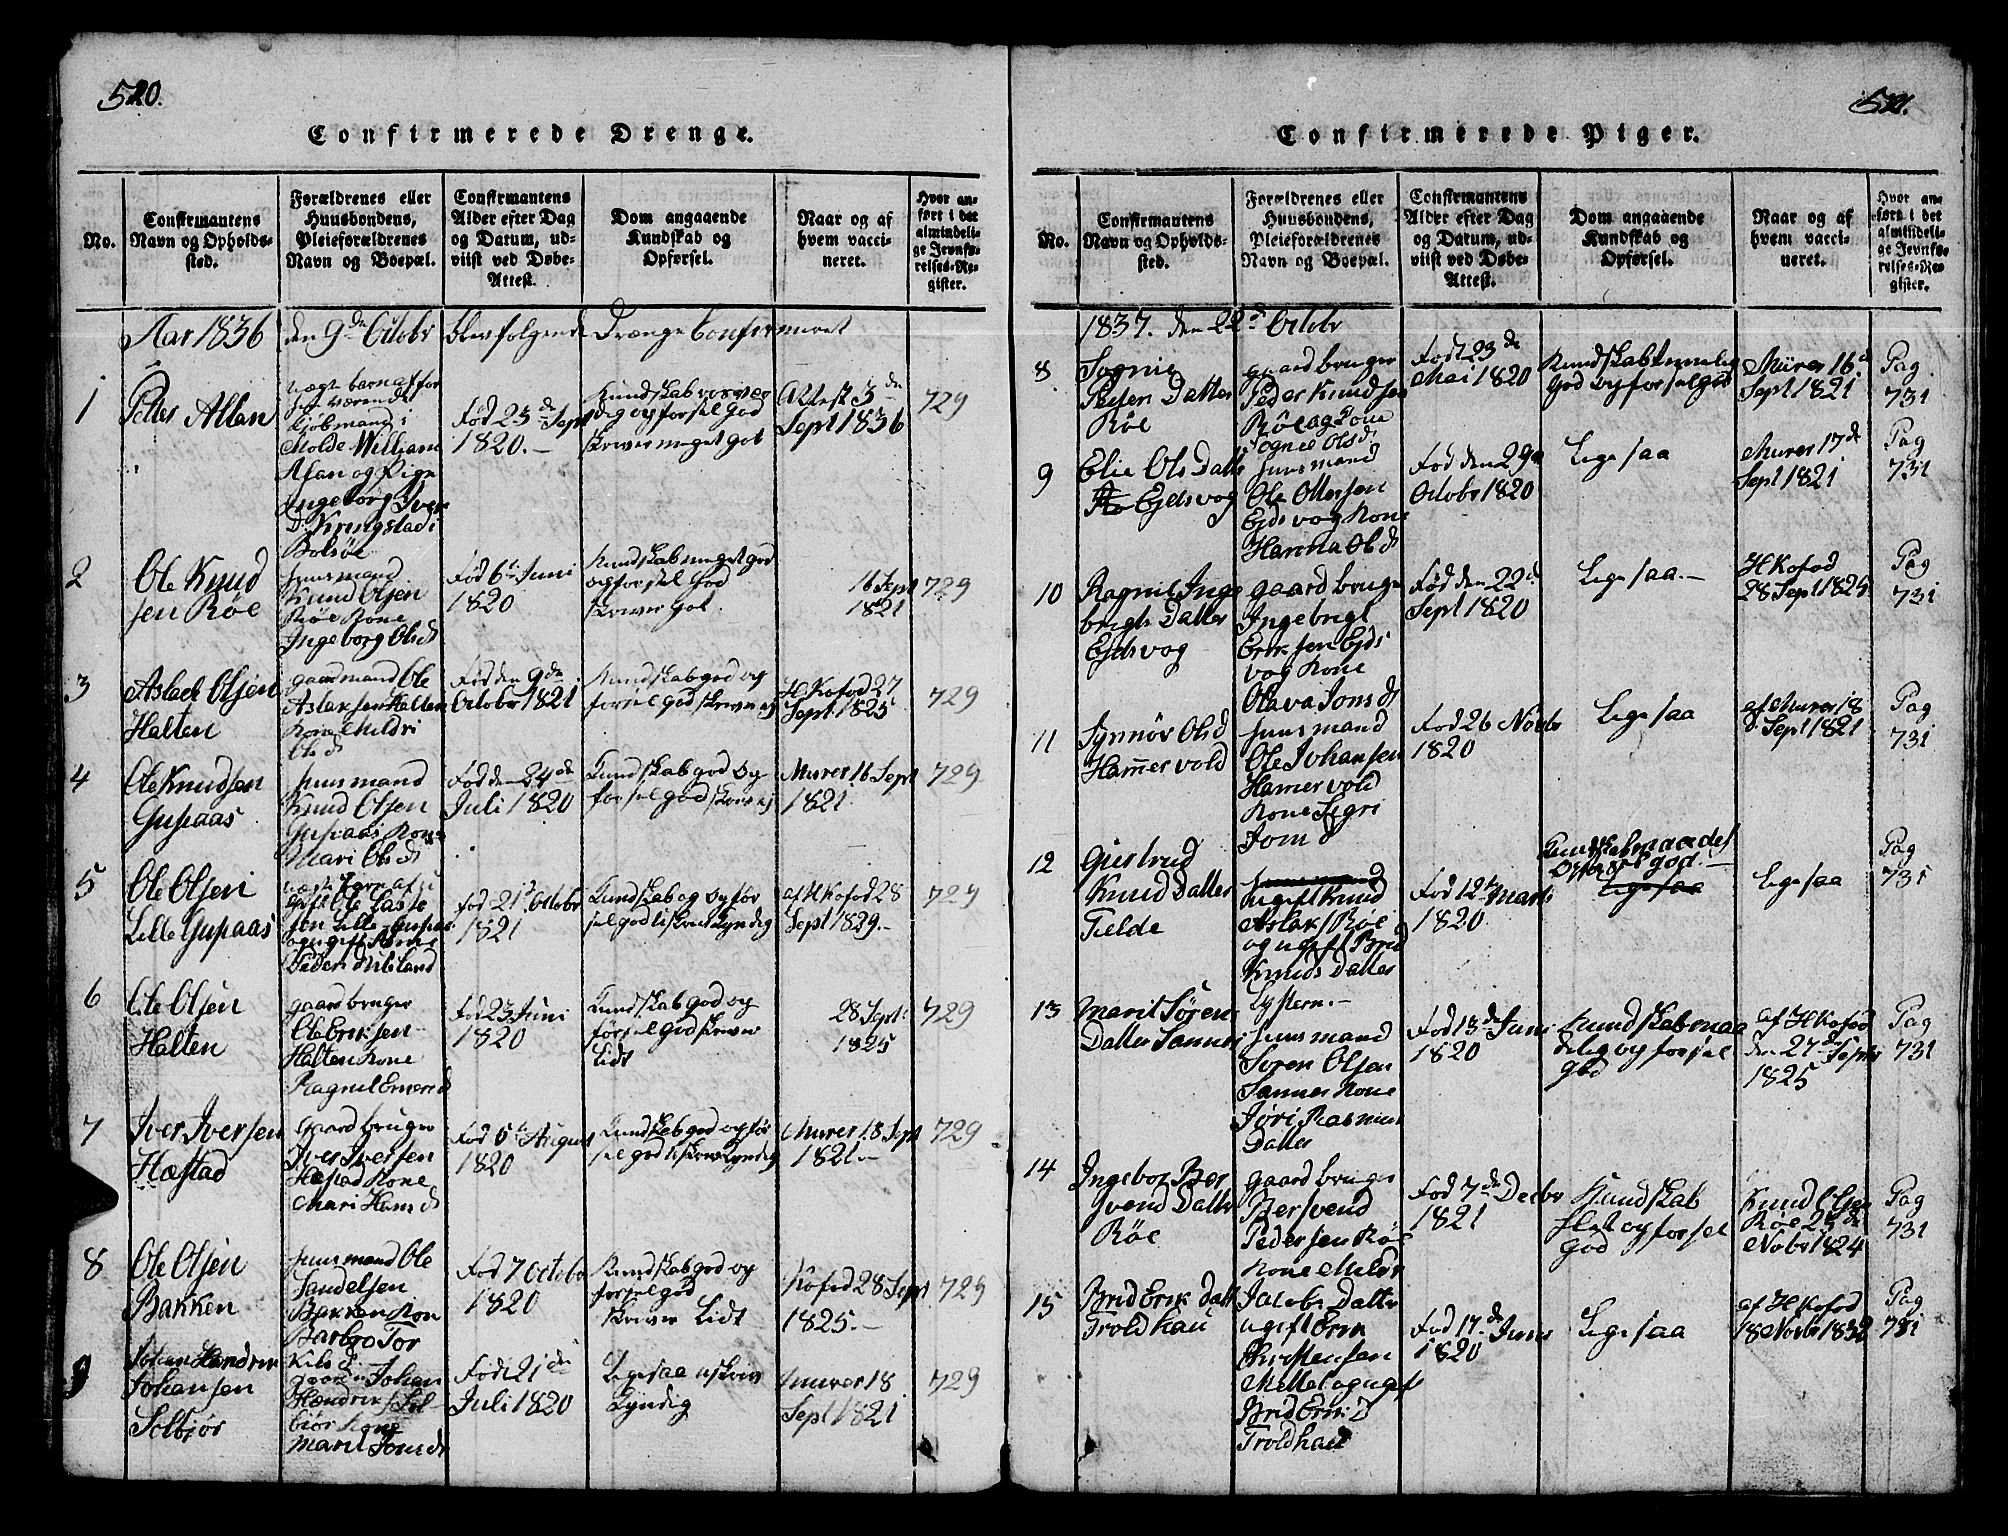 520.
Confirmerede Drenge.
No.
Confirmantens
Navn og Opholds-
sted.
Forældrenes eller
Huusbondens,
Pleieforældrenes
Navn og Boepæl.
Confirmantens
Alder efter Dag
og Datum, ud-
viist ved Døbe-
Attest.
Dom angaaende
Kundskab og
Opførsel.
Naar og af
hvem vacci-
neret.
Hvor an-
ført i det
almindeli-
ge Jevnfø-
relses-Re-
gister.
Aar 1836 den 9de Octobr blev følgende Drænge Confirmeret
1
Petter Allan
forværende
Kjøbmand i
Molde William
Alan og Pige
Ingeborg Iver
D. Kringstad i
Bolsöe
Fød 23de Sept
1820.-
Kundskab nosvær
dig og forsel God
skriver meget got
Attest 3de
Sept 1836
729
2
Ole Knud
sen Röe
huusmand
Knud Olsen
Röe Kone
Ingeborg Olsd
Fød 6t Juni
1820
Kundskab meget god
og forsel God
skriver got.
16 Sept
1821
729
3
Aslack Olsen
Halten
gaardmand Ole
Aslaksen Halten
Kone Mildri
Olsd
Fød den 9de
Octobr 1821
Kundskab god og
forsel god skriver ej
H Kofod 27
Sept 1825
729
4
Ole Knudsen
Gusiaas
huusmand
Knud Olsen
Gusiaas Kone
Mari Olsd
Fød den 24de
Juli 1820
Kundskab god og
forsel god skriver ej
Murer 16 Sept
1821
729
5
Ole Olsen
Lille Gusiaas
gift Ole Lasse
sen Lille Gusiaas
og ugift
Fød 21d Octobr
1821
Kundskab og Opför
sel god
af H Kofod 28
Sept 1829.-
729
6
Ole Olsen
Halten
gaardbruger
Ole Eriksen
Halten Kone
Ragnil
Fød 23 Juni
1820
Kundskab god og
förselgod skriver
Lidt
28 Sept
1825
729
7
Iver Iversen
Hæstad
Gaardbruger
Iver Iversen
Hæstad Kone
Mari Hansd
Fød 5t August
1820
Kundskab god og för
sel god
Murer 18 Sept
1821.-
729
8
Ole Olsen
Bakken
huusmand Ole
Sandelsen
Bakken Kon
Barbro Tor
Kilsd
Fød 7 Octobr
1820
Kundskab god og
forsel god
skriver Lidt
Kofod 28 Sept
1825.-
729
9
Johan Hendrik
Johansen
Solbjör
gaardm Johan
Hændriks Sol-
biör Kone
Marit Jonsdt
Fød 21de
Juli 1820
Ligesaa
Lyndig
Murer 18
Sept 1821
729
521.
Confirmerede Piger.
No.
Confirmantens
Navn og Opholds-
sted.
Forældrenes eller
Huusbondens,
Pleieforældrenes
Navn og Boepæl.
Confirmantens
Alder efter Dag
og Datum, ud-
viist ved Døbe-
Attest.
Dom angaaende
Kundskab og
Opførsel.
Naar og af
hvem vacci-
neret.
Hvor an-
ført i det
almindeli-
ge Jevnfø-
relses-Re-
gister.
1837. den 22d Octobr
8
Sognie
Peder Datter
Röe
gaardbruger
Peder Knudsen
Röe og Kone
Sognie Olsd
Född 23de
Mai 1820
Kundskab temelig
God og forsel god
Mürer 16d
Sept 1821
Pag
731
9
Elie Ols Datter
Ejdsvog
huusmand
Ole Ollersen
Ejdsvog Kone
Hanna Olsd
Fød den 29de
Octobr 1820
Ligesaa
Murer 17de
Sept 1821
Pag
731
10
Ragnil Inge
brigts Datter
Ejdsvog
gaardbruge
Ingebrigt
Eriksen Ejds
vog Kone
Olava Jonsd
Fød den 22d
Sept 1820
Ligesaa.-
H Kofod
28 Sept 1825
Pag
731
11
Synnöv Olsd
Hamervold
huusmand
Ole Johansen
Hamervold
Kone Segri
Jonsd
Fød 26 Novbr
1820
Ligesaa
af Murer 18
Sept 1821
Pag
731
12
Giertrud
Knud Datter
Tielde
huusmand
ugift Knud
Aslaks Röe
og ugift Brid
Knuds Datter
Lystern.-
Fød 12t Marts
1820
Kundskab maadel
Opførsel god.-
Ligesaa
Ligesaa
Pag
731
13
Marit Sören
Datter Sannes
huusmand
Soren Olsen
Sannes Kone
Jöri Rasmus
Datter
Fød 13de Juni
1820
Kundskab maa
delig og forsel
god
af H Kofod
den 27de Septbr
1825
Pag
731
14
Ingebor Ber
svend Datter
Röe
gaardbruger
Bersvend
Pedersen Röe
Kone Mildri
Jacobs Datter
Fød 7de Decbr
1821
Kundskab
slet og forsel
god
Knud Olsen
Röe 25de
Novbr 1824
Pag
731
15
Brid Erik Datt
Troldhau
ugift Erik
Christensen
Mettel og ugift
Brid Erik D
Troldhau
Fød 17de Juni
1820
Ligesaa
af H Kofod
18 Novbr 1832
Pag
731